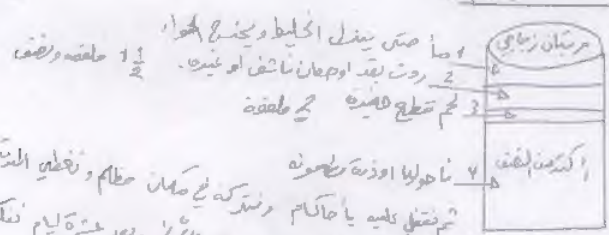 مرتبان زجاجي
1 ماء حتى ينزل الخليط ويخرج الهواء
2 روث بقر او حصان ناشف او غيره. 1 1/2 ملعقه ونصف
3 لحم قطع صغيره 2 ملعقة
اكثر من النصف
4 او ذرة مطحونه
ثم نقفل عليه بأحكام ونتركه في مكان مظلم ونغطي
عشرة ايام